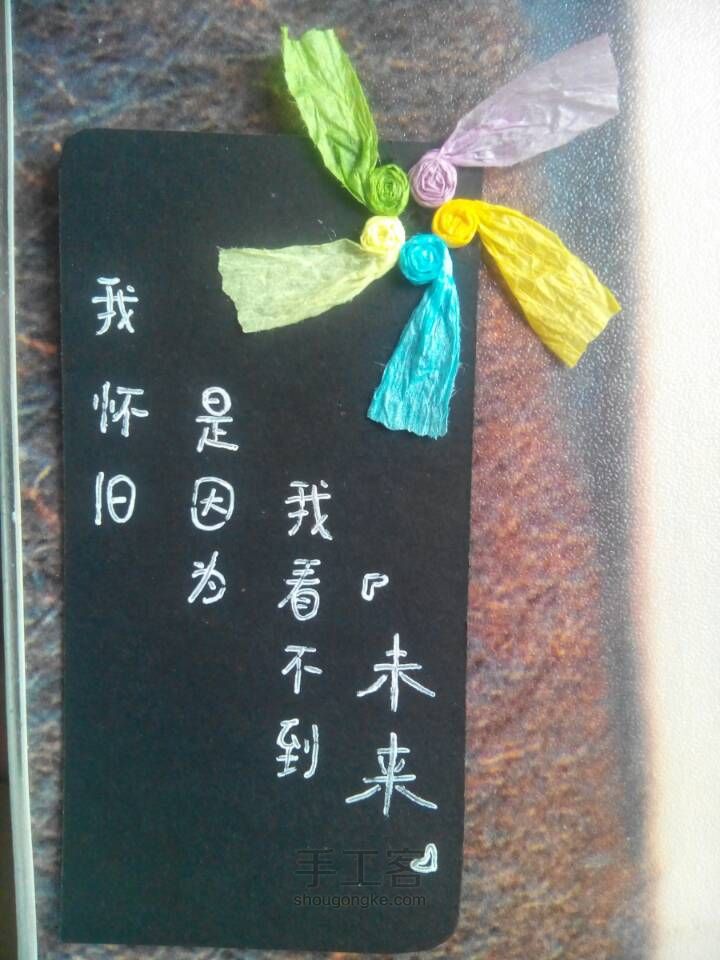 我怀旧
是因为
我看不到
『未来』
手工客
shougongke.com